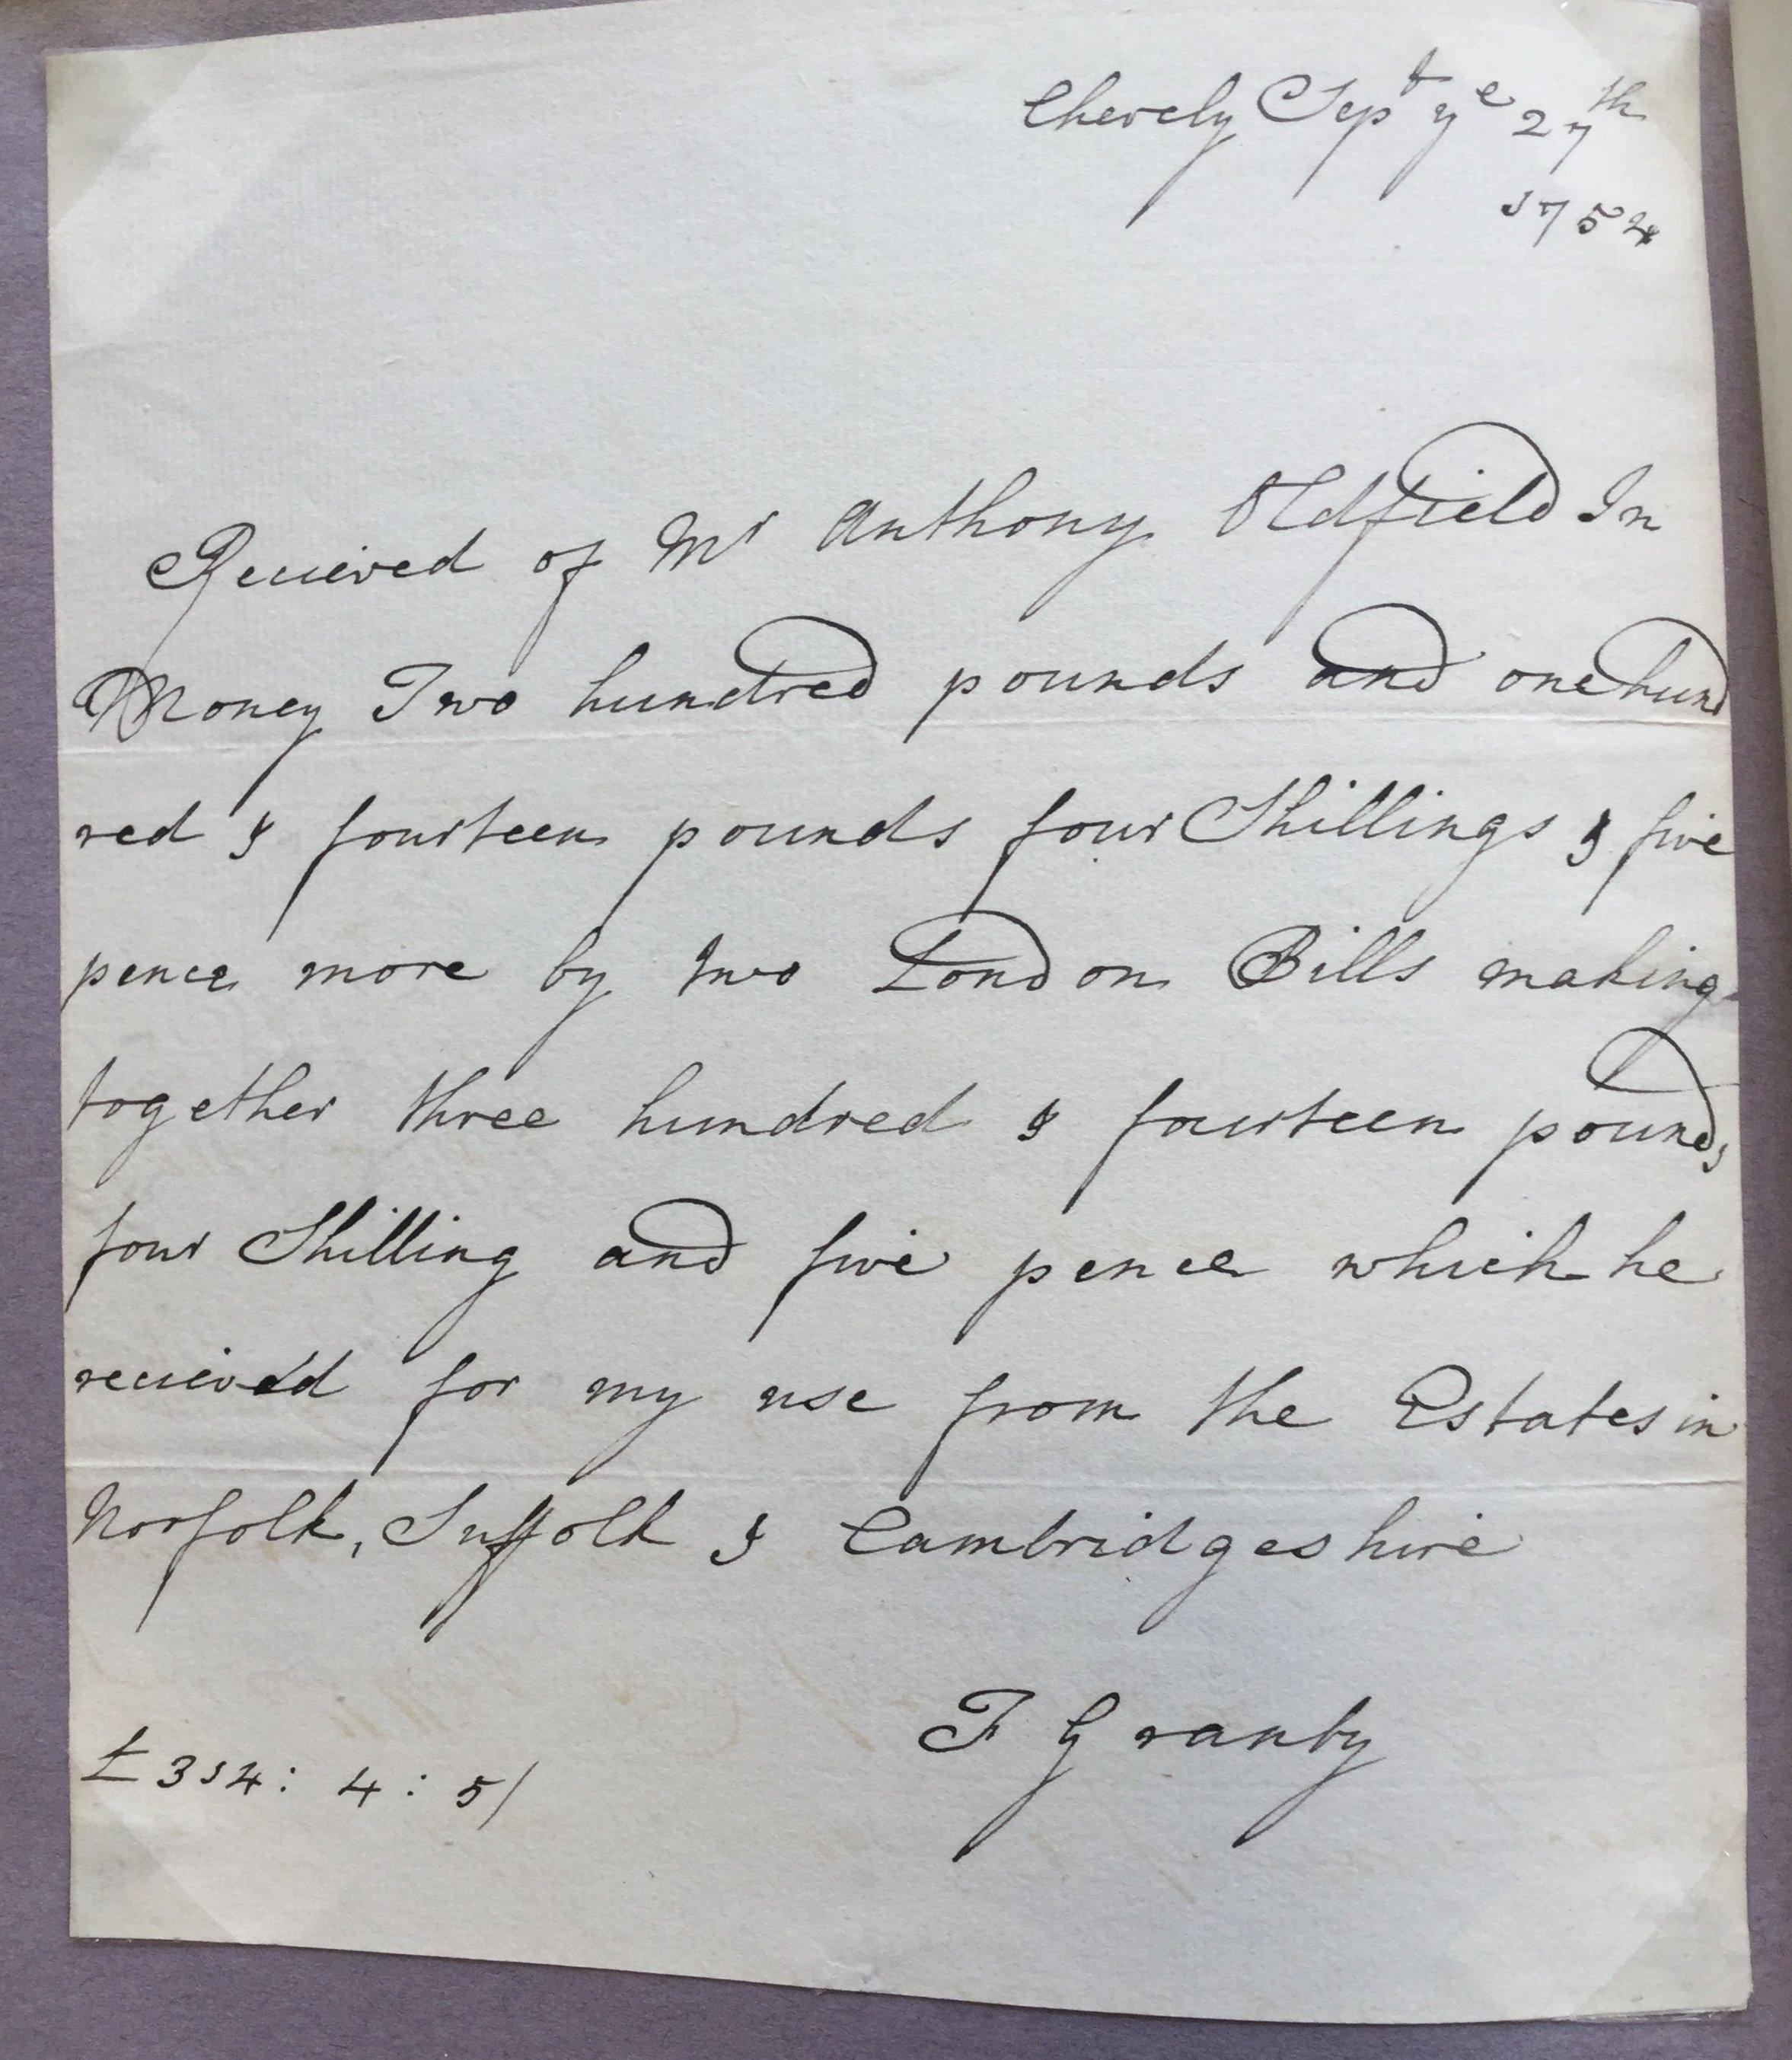 Chevely Sep^t y^e 27^th
1754
Recieved of M^r Anthony Oldfield In
Money Two hundred pounds and one hund
red & fourteen pounds four Shillings & five
pence more by two London Bills making
together three hundred & fourteen pounds
four Shilling and five pence which he
recieved for my use from the Estates in
Norfolk, Suffolk & Cambridgeshire
F Granby
£314: 4: 5/